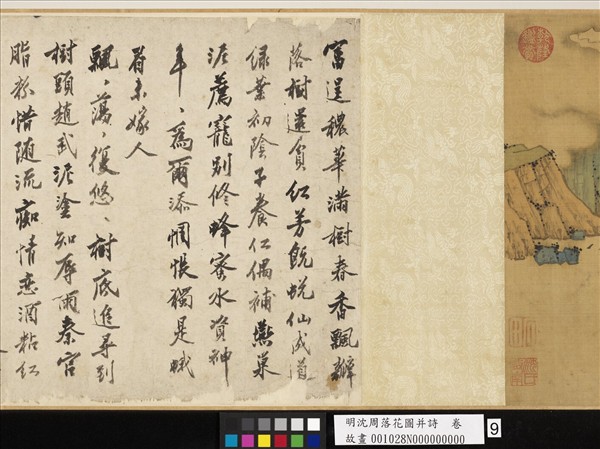 富逞穠華滿樹春香飄瓣
落樹還貧紅芳既蛻仙成道
綠葉初陰子養仁偶補燕巢
泥薦寵別修蜂蜜水資神
年、爲爾添惆悵獨是蛾
眉未嫁人
飄、蕩、復悠、樹底追尋到
樹頭趙武泥塗知辱雨秦宮
脂粉惜随流痴情戀酒粘紅
明沈周落花圖并詩 卷
故畫 001028N000000000
9